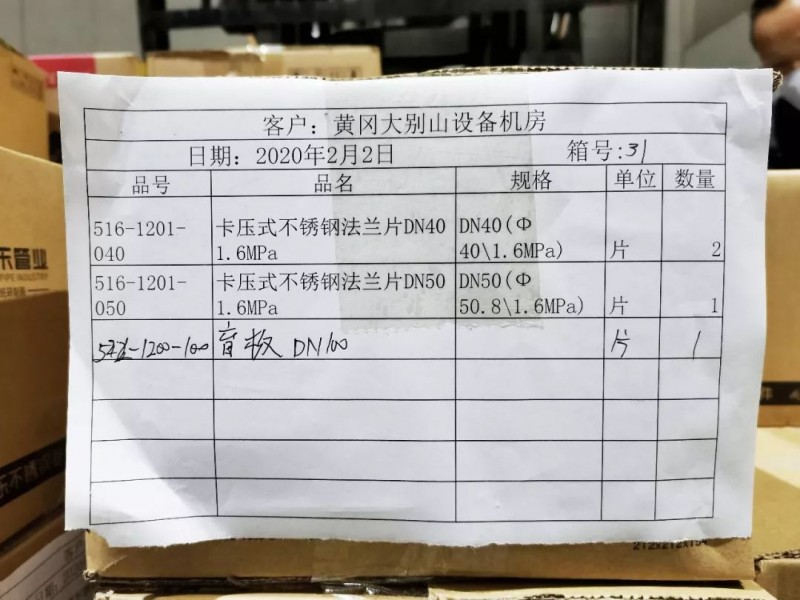 客户：黄冈大别山设备机房
日期：2020年2月2日 箱号:31
品号 品名 规格 单位 数量
516-1201-040 卡压式不锈钢法兰片DN40 1.6MPa DN40(Φ40\1.6MPa) 片 2
516-1201-050 卡压式不锈钢法兰片DN50 1.6MPa DN50(Φ50.8\1.6MPa) 片 1
-1200-100 盲板 DN100 片 1
乐管业
PIPE INDUSTRY
乐不锈钢